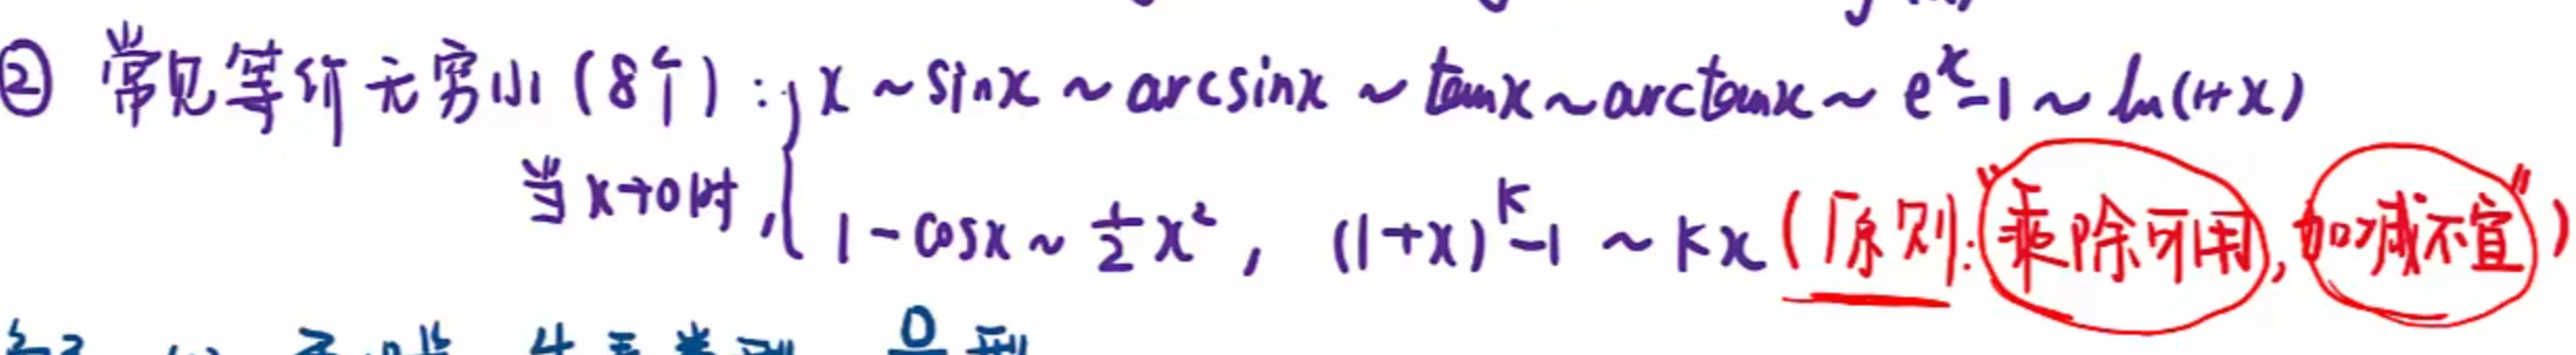 ② 常见等价无穷小(8个): x ~ sinx ~ arcsinx ~ tanx ~ arctanx ~ e^x-1 ~ ln(1+x)
当x→0时, 1-cosx ~ 1/2 x², (1+x)^k-1 ~ kx (原则:"乘除可用,加减不宜")
0 型